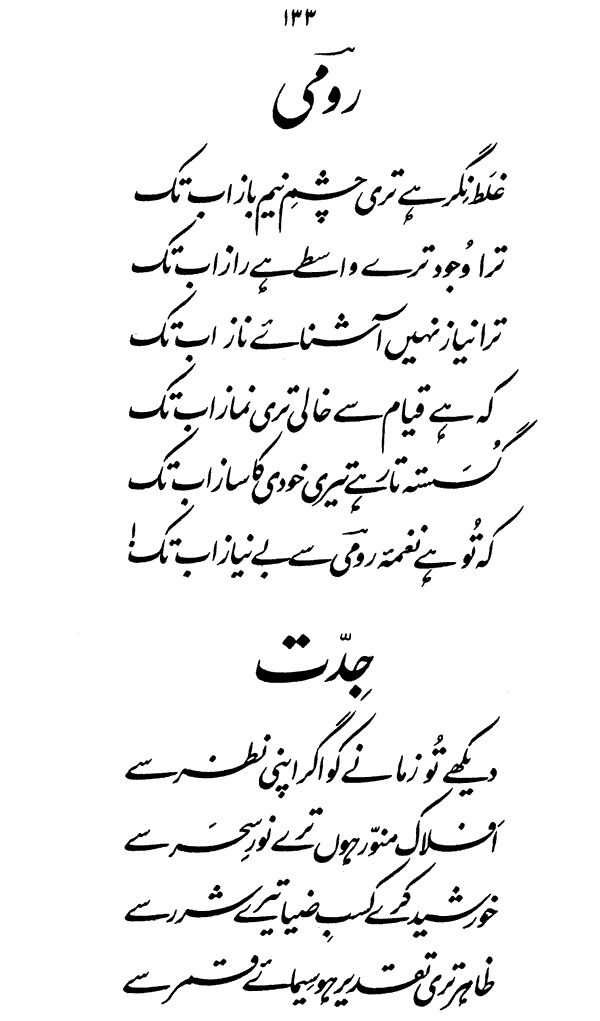 ۱۳۳
رومیؔ
غلَط نِگر ہے تری چشمِ نیم باز اب تک
ترا وُجود ترے واسطے ہے راز اب تک
ترا نیاز نہیں آشنائے ناز اب تک
کہ ہے قیام سے خالی تری نماز اب تک
گُسَستہ تار ہے تیری خودی کا ساز اب تک
کہ تُو ہے نغمۂ رومیؔ سے بے نیاز اب تک!
جِدّت
دیکھے تُو زمانے کو اگر اپنی نظر سے
اَفلاک منوّر ہوں ترے نورِ سحَر سے
خورشید کرے کسبِ ضیا تیرے شرر سے
ظاہر تری تقدیر ہو سیمائے قمر سے